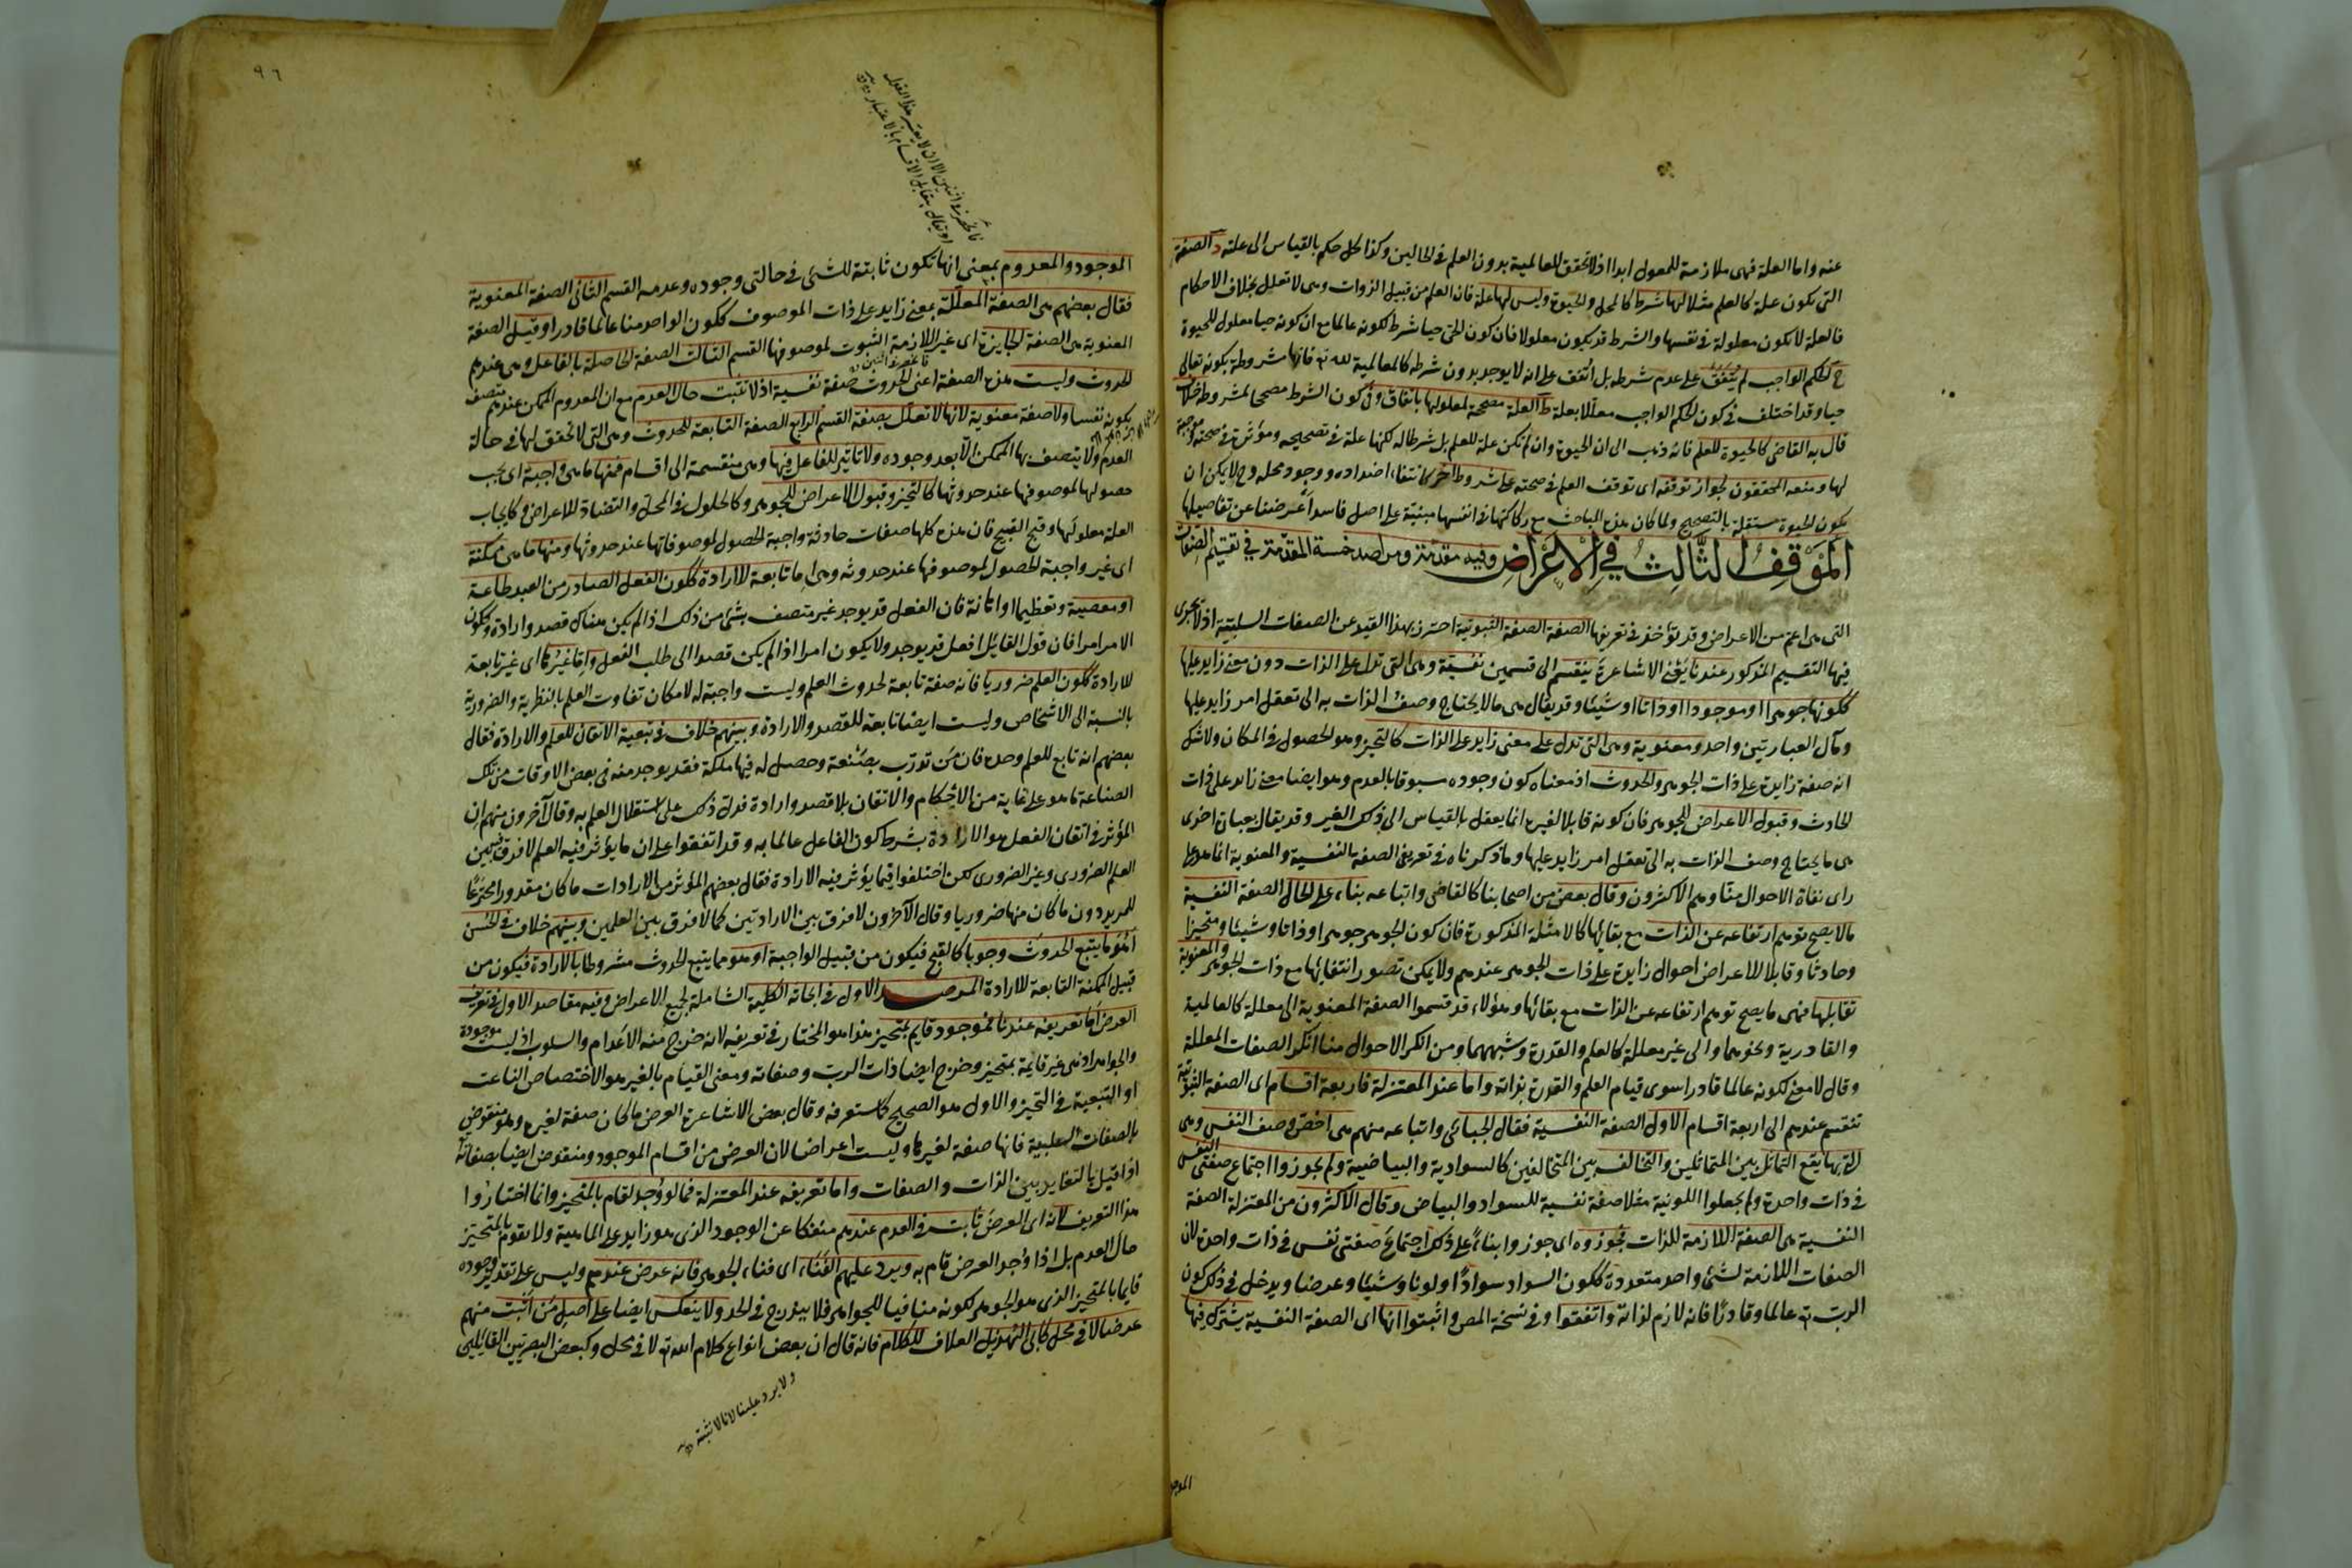 عنه واما العلة فهى ملازمة للمعلول ابدا اذ لا تحقق للعالمية بدون العلم فى الحالين وكذا كل حكم بالقياس الى علته د الصفة
التى تكون علة كالعلم مثلا لها شرط كالمحل والحيوة وليس لها علة فان العلم من قبيل الذوات وهى لا تعلل بخلاف الاحكام
فالعلة لا تكون معلولة فى نفسها والشرط قد يكون معلولا فان كون الحى حيا شرط لكونه عالما مع ان كونه حيا معلول للحيوة
ح الحكم الواجب لم يتفق على عدم شرطه بل اتفق على انه لا يوجد بدون شرطه كالعالمية لله تع فانها مشروطة بكونه تعالى
حيا وقد اختلف فى كون الحكم الواجب معللا بعلة ط العلة مصححة لمعلولها باتفاق وفى كون الشرط مصححا لمشروطه خلاف
قال به القاضى كالحيوة للعلم فانه ذهب الى ان الحيوة وان لم تكن علة للعلم بل شرطا له لكنها علة فى تصحيحه ومؤثرة فى صحته وموجبة
لها ومنعه المحققون لجواز توقفه اى توقف العلم فى صحته على شروط اخر كانتفاء اضداده ووجود محله وح لا يكن ان
يكون الحيوة مستقلة بالتصحيح ولما كان هذه المباحث مع ركاكتها فى انفسها مبنية على اصل فاسد اعرضنا عن تفاصيلها
الموقف الثالث فى الاعراض وفيه مقدمة ومراصد خمسة المقدمة فى تقسيم الصفات
التى هى اعم من الاعراض وقد يؤخذ فى تعريفها الصفة الصفة الثبوتية احترز بهذا القيد عن الصفات السلبية اذ لا يجرى
فيها التقسيم المذكور عندنا يعنى الاشاعرة ينقسم الى قسمين نفسية وهى التى تدل على الذات دون معنى زايد عليها
ككونها جوهرا او موجودا او ذاتا او شيئا وقد يقال هى ما لا يحتاج وصف الذات به الى تعقل امر زايد عليها
ومآل العبارتين واحد ومعنوية وهى التى تدل على معنى زايد على الذات كالتحيز وهو الحصول فى المكان ولا شك
انه صفة زايدة على ذات الجوهر والحدوث اذ معناه كون وجوده مسبوقا بالعدم وهو ايضا معنى زايد على ذات
الحادث وقبول الاعراض للجوهر فان كونه قابلا لغيره انما يعقل بالقياس الى ذلك الغير وقد يقال بعبارة اخرى
هى ما يحتاج وصف الذات به الى تعقل امر زايد عليها وما ذكرناه فى تعريف الصفة النفسية والمعنوية انما هو على
راى نفاة الاحوال منا وهم الاكثرون وقال بعض من اصحابنا كالقاضى واتباعه بناء على الحال الصفة النفسية
ما لا يصح توهم ارتفاعه عن الذات مع بقائها كالامثلة المذكورة فان كون الجوهر جوهرا وذاتا وشيئا ومتحيزا
وحادثا وقابلا للاعراض احوال زايدة على ذات الجوهر عندهم ولا يمكن تصور انتفائها مع ذات الجوهر والمعنوية
تقابلها فهى ما يصح توهم ارتفاعه عن الذات مع بقائها وهؤلاء قد قسموا الصفة المعنوية الى معللة كالعالمية
والقادرية ونحوهما والى غير معللة كالعلم والقدرة وشبههما ومن انكر الاحوال منا انكر الصفات المعللة
وقال لا معنى لكونه عالما قادرا سوى قيام العلم والقدرة بذاته واما عند المعتزلة فاربعة اقسام اى الصفة الثبوتية
تنقسم عندهم الى اربعة اقسام الاول الصفة النفسية فقال الجبائى واتباعه منهم هى اخص وصف النفس وهى
التى بها يقع التماثل بين المتماثلين والتخالف بين المتخالفين كالسوادية والبياضية ولم يجوزوا اجتماع صفتى النفس
فى ذات واحدة ولم يجعلوا اللونية مثلا صفة نفسية للسواد والبياض وقال الاكثرون من المعتزلة الصفة
النفسية هى الصفة اللازمة للذات فجوزوه اى جوزوا بناء على ذلك اجتماع صفتى نفس فى ذات واحدة لان
الصفات اللازمة لشئ واحد متعددة ككون السواد سوادا او لونا وشيئا وعرضا ويدخل فى ذلك كون
الرب تع عالما وقادرا فانه لازم لذاته واتفقوا وفى نسخة المص واثبتوا انها اى الصفة النفسية يشترك فيها
الموجو
٩٦
فانحصر فى اثنين الا ان لا يعتبر هذا القول
او يقال تقابل الاقسام بالاعتبار
الموجود والمعدوم بمعنى انها تكون ثابتة للشئ فى حالتى وجوده وعدمه القسم الثانى الصفة المعنوية
فقال بعضهم هى الصفة المعللة بمعنى زايد على ذات الموصوف ككون الواحد منا عالما قادرا وقيل الصفة
المعنوية هى الصفة الجايزة اى غير اللازمة الثبوت لموصوفها القسم الثالث الصفة الحاصلة بالفاعل وهى عندهم
الحدوث وليست هذه الصفة اعنى الحدوث صفة نفسية اذ لا تثبت حال العدم مع ان المعدوم الممكن عندهم متصف
بكونه نفسا ولا صفة معنوية لانها لا تعلل بصفة القسم الرابع الصفة التابعة للحدوث وهى التى لا تحقق لها فى حالة
العدم ولا يتصف بها الممكن الا بعد وجوده ولا تاثير للفاعل فيها وهى منقسمة الى اقسام فمنها ما هى واجبة اى يجب
حصولها لموصوفها عند حدوثها كالتحيز وقبول الاعراض للجوهر وكالحلول فى المحل والتضاد للاعراض وكايجاب
العلة معلولها وقبح القبيح فان هذه كلها صفات حادثة واجبة الحصول لموصوفاتها عند حدوثها ومنها ما هى ممكنة
اى غير واجبة الحصول لموصوفها عند حدوثه وهى اما تابعة للارادة ككون الفعل الصادر من العبد طاعة
او معصية وتعظيما او اهانة فان الفعل قد يوجد غير متصف بشئ من ذلك اذا لم يكن هناك قصد وارادة وككون
الامر امرا فان قول القايل افعل قد يوجد ولا يكون امرا اذا لم يكن قصدا الى طلب الفعل واما غيرها اى غير تابعة
للارادة ككون العلم ضروريا فانه صفة تابعة لحدوث العلم وليست واجبة له لامكان تفاوت العلم بالنظرية والضرورية
بالنسبة الى الاشخاص وليست ايضا تابعة للقصد والارادة وبينهم خلاف فى تبعية الاتقان للعلم والارادة فقال
بعضهم انه تابع للعلم وحده فان من تدرب بصنعة وحصل له فيها ملكة فقد يوجد منه فى بعض الاوقات من تلك
الصناعة ما هو على غاية من الاحكام والاتقان بلا قصد وارادة فدل ذلك على استقلال العلم به وقال آخرون منهم ان
المؤثر فى اتقان الفعل هو الارادة بشرط كون الفاعل عالما به وقد اتفقوا على ان ما يؤثر فيه العلم لا فرق فيه بين
العلم الضرورى وغير الضرورى لكن اختلفوا فيما يؤثر فيه الارادة فقال بعضهم المؤثر من الارادات ما كان مقدورا مخترعا
للمريد دون ما كان منها ضروريا وقال الآخرون لا فرق بين الارادتين كما لا فرق بين العلمين وبينهم خلاف فى الحسن
اهو مما يتبع الحدوث وجوبا كالقبح فيكون من قبيل الواجبة او هو مما يتبع الحدوث مشروطا بالارادة فيكون من
قبيل الممكنة التابعة للارادة المرصد الاول فى ابحاثه الكلية الشاملة لجميع الاعراض وفيه مقاصد الاول فى تعريف
العرض اما تعريفه عندنا فموجود قايم بمتحيز هذا هو المختار فى تعريفه لانه خرج منه الاعدام والسلوب اذ ليست موجودة
والجواهر اذ هى غير قايمة بمتحيز وخرج ايضا ذات الرب وصفاته ومعنى القيام بالغير هو الاختصاص الناعت
او التبعية فى التحيز والاول هو الصحيح كما ستعرفه وقال بعض الاشاعرة العرض ما كان صفة لغيره وهو منقوض
بالصفات السلبية فانها صفة لغيرها وليست اعراضا لان العرض من اقسام الموجود ومنقوض ايضا بصفاته
اذا قيل بالتغاير بين الذات والصفات واما تعريفه عند المعتزلة فما لو وجد لقام بالمتحيز وانما اختاروا
هذا التعريف لانه اى العرض ثابت فى العدم عندهم منفكا عن الوجود الذى هو زايد على الماهية ولا يقوم بالمتحيز
حال العدم بل اذا وجد العرض قام به ويرد عليهم الفناء اى فناء الجوهر فانه عرض عندهم وليس على تقدير وجوده
قايما بالمتحيز الذى هو الجوهر لكونه منافيا للجواهر فلا يندرج فى الحد ولا ينعكس ايضا على اصل من اثبت منهم
عرضا لا فى محل كابى الهذيل العلاف للكلام فانه قال ان بعض انواع كلام الله تع لا فى محل وكبعض البصريين القايلين
ولا يرد علينا لانا لا نثبته